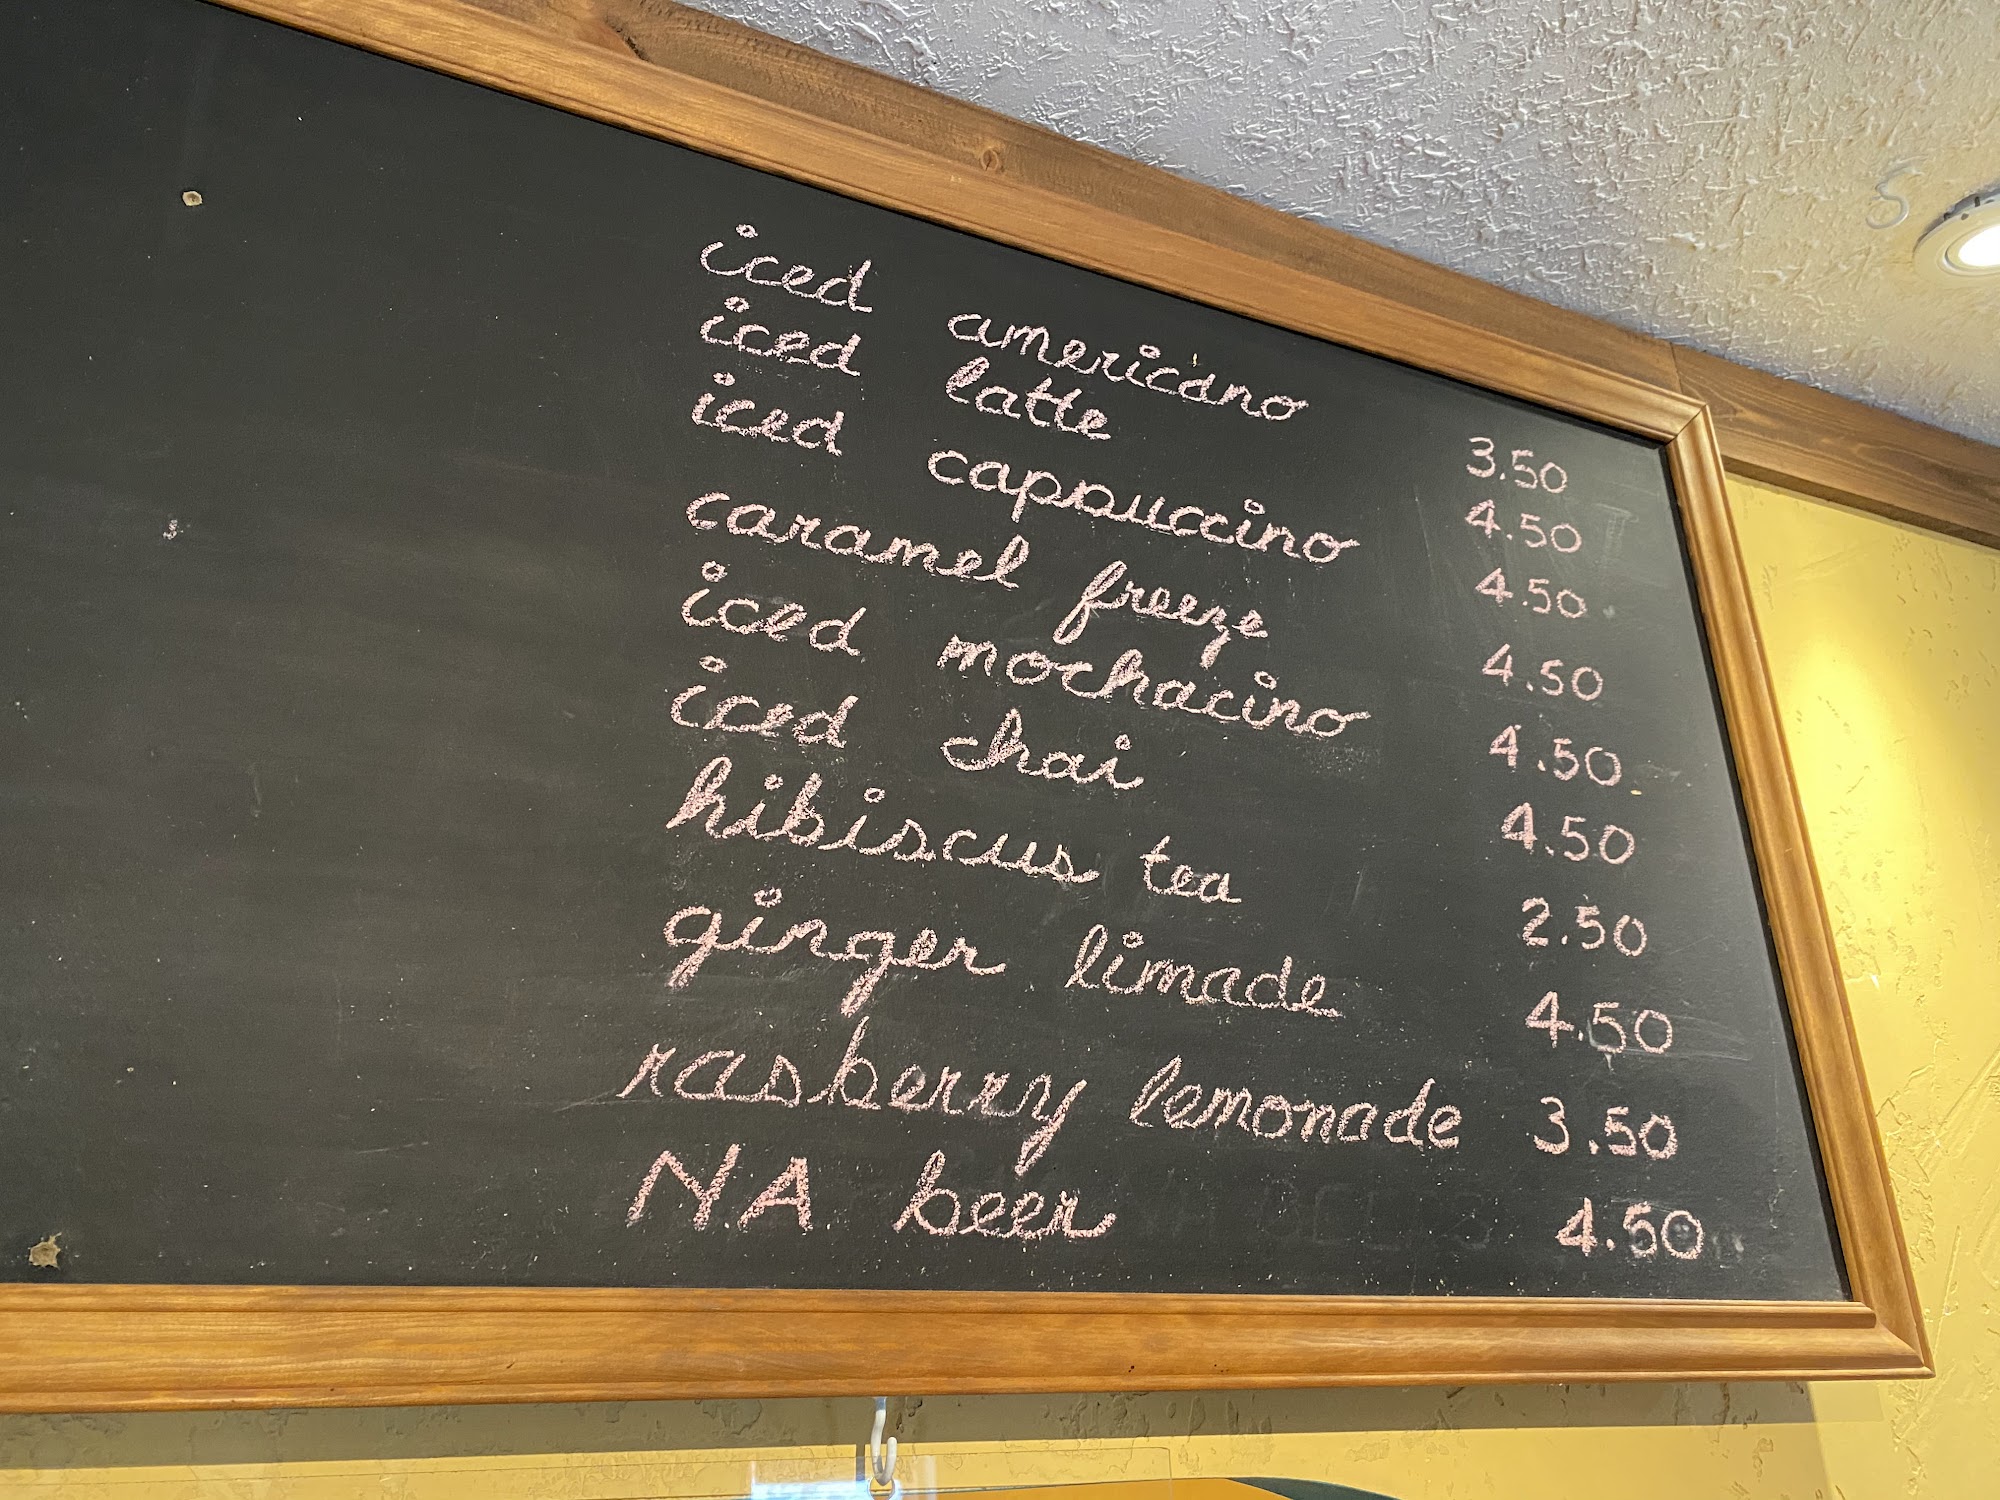 iced americano 3.50
iced latte 4.50
iced cappuccino 4.50
caramel freeze 4.50
iced mochacino 4.50
iced chai 4.50
hibiscus tea 2.50
ginger limade 4.50
rasberry lemonade 3.50
N.A beer 4.50